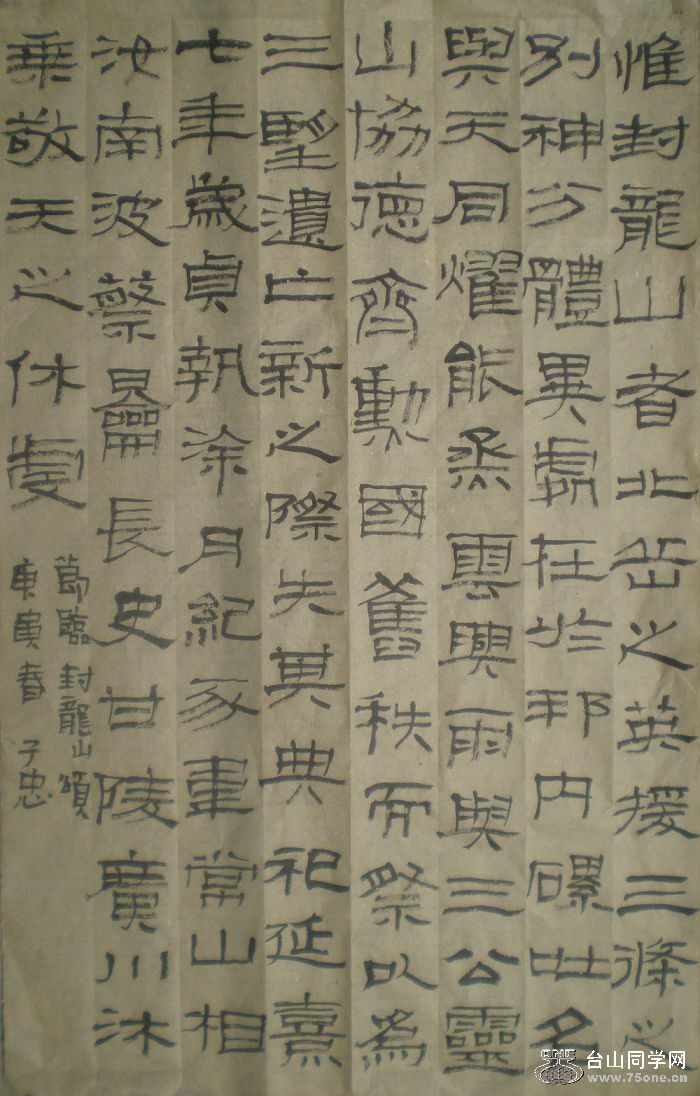 惟封龍山者北岳之英援三條之
別神分體異處在於邦内磥硌名
與天同燿能烝雲興雨與三公靈
山協德齊勳國舊秩而祭以爲
三望遺亡新之際失其典祀延熹
七年歲貞執涂月紀豕韋常山相
汝南波蔡昌長史甘陵廣川沐
乘敬天之休虔
節臨封龍山頌
庚寅春 子忠
台山同学网
www.75one.cn